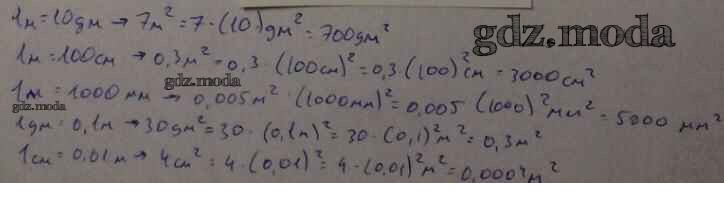 1м = 10дм → 7м² = 7 · (10)дм² = 700дм²
gdz.moda
1м = 100см → 0,3м² = 0,3 · (100см)² = 0,3 · (100)²см = 3000см²
gdz.moda
1м = 1000мм → 0,005м² · (1000мм)² = 0,005 · (1000)²мм² = 5000 мм²
1дм = 0,1м → 30дм² = 30 · (0,1м)² = 30 · (0,1)²м² = 0,3м²
1см = 0,01м → 4см² = 4 · (0,01)² = 4 · (0,01)²м² = 0,0004м²
gdz.moda